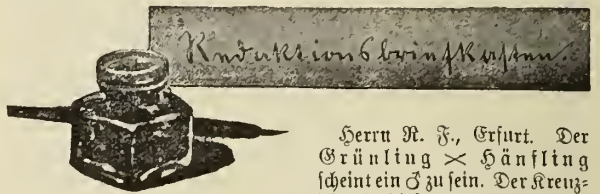 Redaktionsbriefkasten.
Herrn R. F., Erfurt. Der
Grünling × Hänfling
scheint ein ♂ zu sein. Der Kreuz=